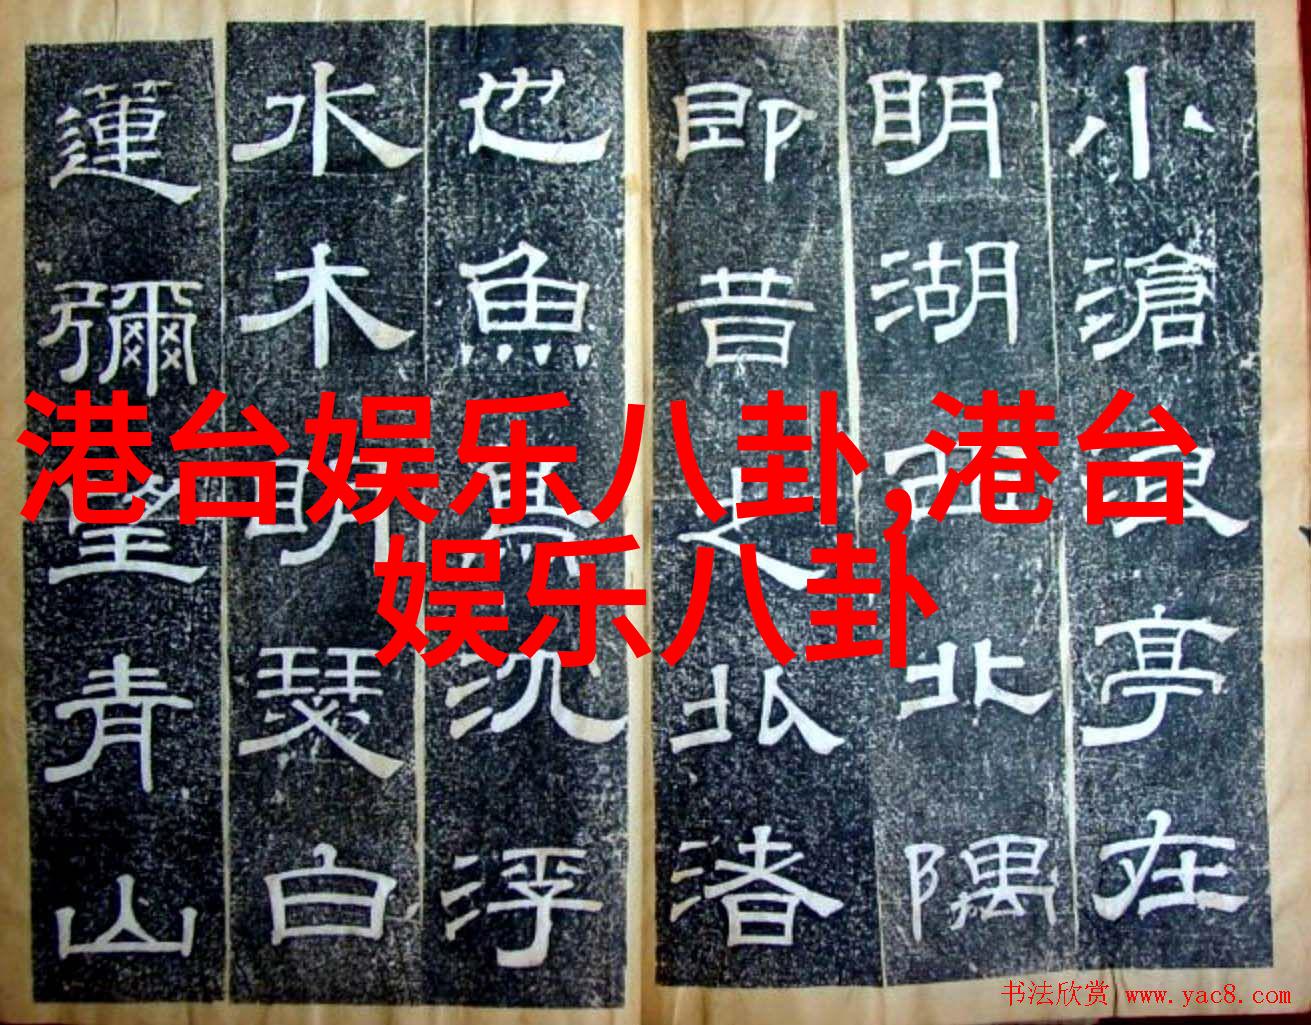 港台娱乐八卦,港台
娱乐八卦
小滄浪亭在
明湖西北隅
即昔之北渚
也魚鳥沈浮
水木明瑟白
蓮彌望青山
书法欣赏 www.yac8.com